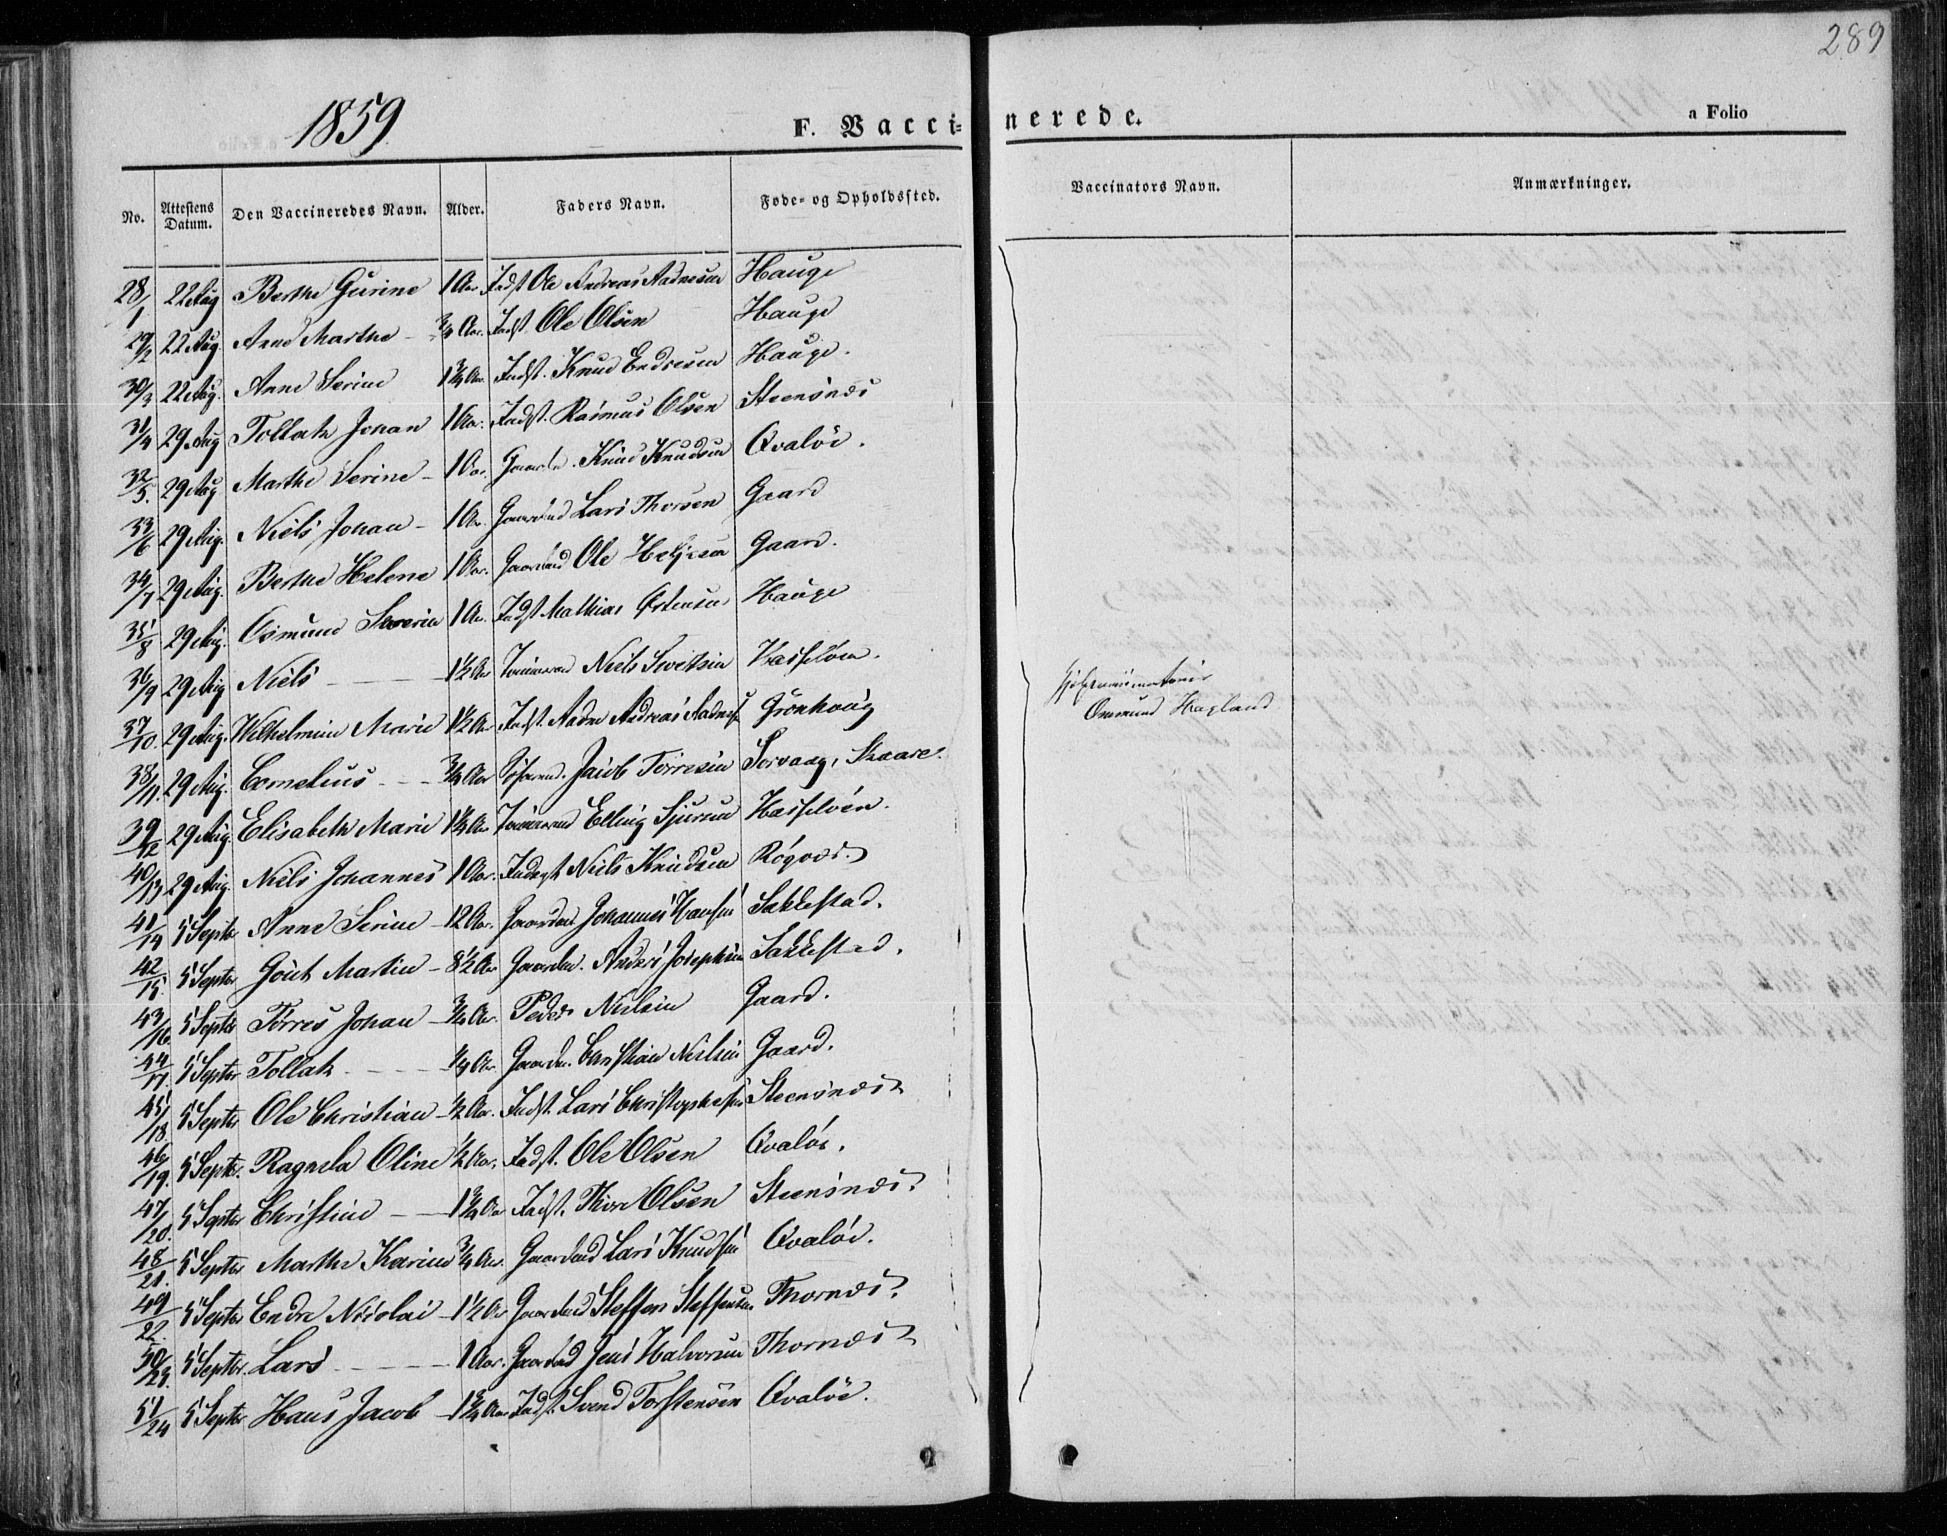 289
1859
F. Vaccinerede.
a Folio
No. Attestens Datum. Den Vaccineredes Navn. Alder. Faders Navn. Føde- og Opholdssted. Vaccinators Navn. Anmærkninger.
28/1 22 Aug Berthe Gurine 1 Aar Indst Ole Andreas Aadnesen Hauge
29/2 22 Aug. Anne Marthe - 3/4 Aar. Indst Ole Olsen Hauge
30/3 22 Aug. Anne Serine 1 3/4 Aar. Indst. Knud Endresen Hauge.
31/4 29 Aug Tollak Johan 1 Aar. Indst. Rasmus Olsen Steensnæs
32/5. 29 Aug Marthe Serine - 1 Aar. Gaardm. Knud Knudsen Qvaløe.
33/6 29 Aug. Niels Johan - 1 Aar. Gaardmd Lars Thorsen Gaard
34/7 29 Aug. Berthe Helene 1 Aar. Gaardmd Ole Helgesen Gaard.
35/8 29 Aug. Osmund Severin 1 Aar. Indst Mathias Østensen Hauge
36/9 29 Aug Niels - - 1 1/2 Aar Niels Hasseløen.
37/10. 29 Aug. Wilhelmine Marie 1 1/2 Aar Indst. Aadne Andreas Aadnes. Grønhoug
38/11. 29 Aug. Cornelius - - - 3/4 Aar Jacob Tørresen Sørvaag, Skaare.
39/12 29 Aug. Elisabeth Marie 1 1/2 Aar Elling Sjursen Hasseløen.
40/13. 29 Aug. Niels Johannes 1 Aar. Indst Niels Knudsen Røgvær.
41/14 5 Septbr Anne Serine - 12 Aar. Gaardm. Johannes Hansen Sakkestad.
42/15. 5 Septbr Gout Martin - 8 1/2 Aar Gaardm. Anders Josephsen Sakkestad.
43/16. 5 Septbr Tørres Johan - 3/4 Aar. Peder Nielsen Gaard.
44/17. 5 Septbr Tollak - - - 1/4 Aar. Gaardm. Christian Nielsen Gaard.
45/18. 5 Septbr Ole Christian - 1/2 Aar. Indst. Lars Christophersen Steensnæs
46/19. 5 Septbr. Ragnela Oline 1/2 Aar. Indst. Ole Olsen Qvaløe.
47/20. 5 Septbr Christine - - 1 3/4 Aar Indst. Thore Olsen Steensnæs.
48/21. 5 Septbr Marthe Karine 3/4 Aar. Gaardmd Lars Knudsen Qvaløe.
49/22. 5 Septbr Endre Nicolai - 1 1/2 Aar Gaardmd Steffen Steffensen Thornæs.
50/23. 5 Septbr. Lars - - - 1 Aar. Gaardmd Jens Halvorsen Thornæs
51/24 5 Septbr. Hans Jacob - 1 3/4 Aar Indst. Svend Torstensen Qvaløe.
Hjelpevaccinateur
Osmund Hagland